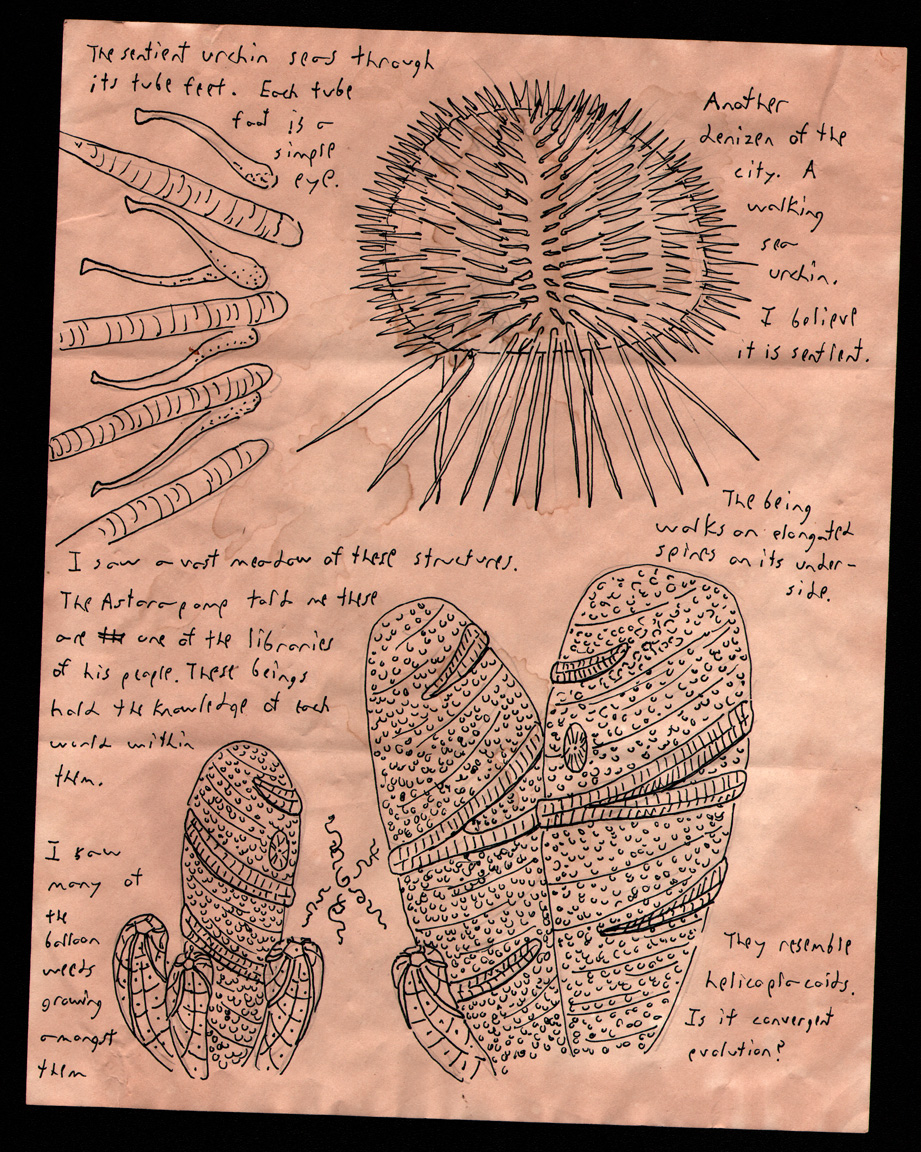 The sentient urchin sees through
its tube feet. Each tube
foot is a
simple
eye.
Another
denizen of the
city. A
walking
sea
urchin.
I believe
it is sentient.
The being
walks on elongated
spines on its under-
side.
I saw a vast meadow of these structures.
The Astarapomp told me these
are one of the libraries
of his people. These beings
hold the knowledge of each
world within
them.
I saw
many of
the
balloon
weeds
growing
amongst
them
They resemble
helicoplacoids.
Is it convergent
evolution?